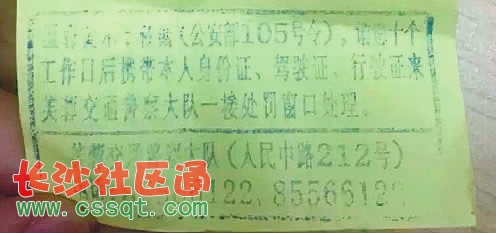 (公安部105号令),请您十个
工作日后携带本人身份证、驾驶证、行驶证来
芙蓉交通警察大队一楼处罚窗口处理。
大队(人民中路212号)
122、8556612
长沙社区通
www.cssqt.com